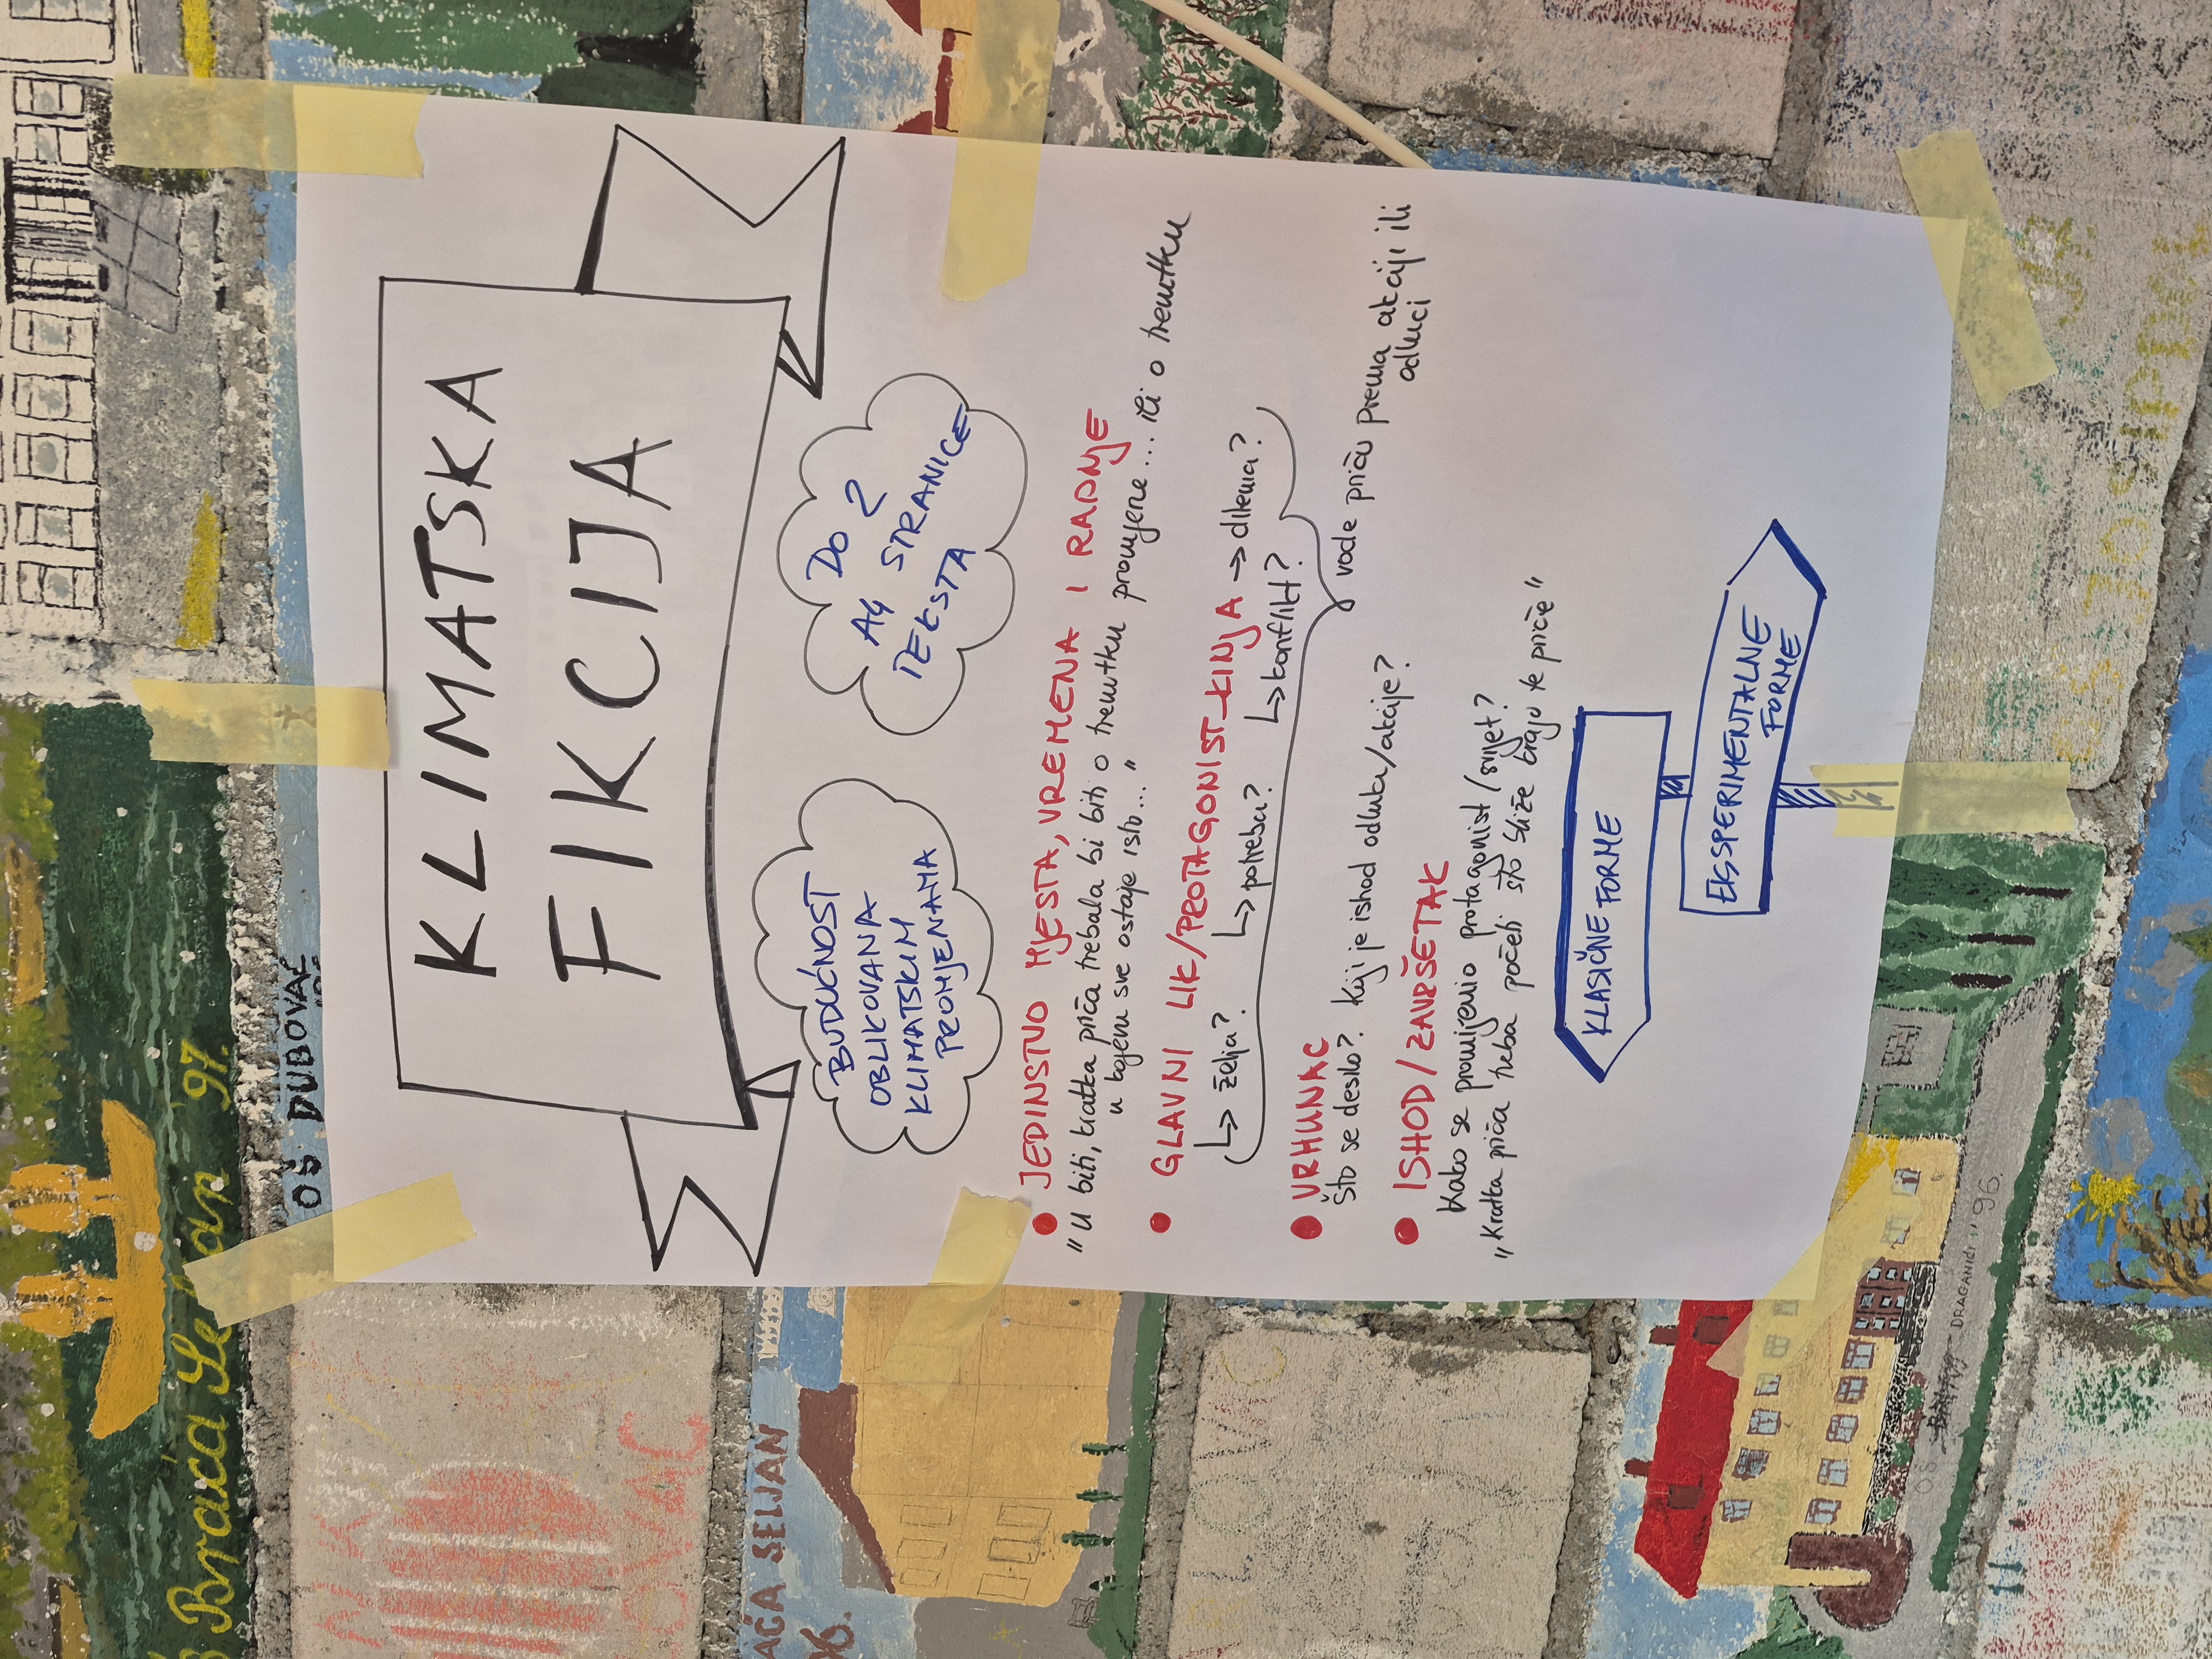 KLIMATSKA
FIKCIJA
BUDUĆNOST
OBLIKOVANA
KLIMATSKIM
PROMJENAMA
DO 2
A4 STRANICE
TEKSTA
• JEDINSTVO MJESTA, VREMENA I RADNJE
"U biti, kratka priča trebala bi biti o trenutku promjene... ili o trenutku
u kojemu sve ostaje isto..."
• GLAVNI LIK/PROTAGONIST_KINJA → dilema?
↳ želja? ↳ potreba? ↳ konflikt?
vode priču prema akciji ili
odluci
• VRHUNAC
Što se desilo? Koji je ishod odluke/akcije?
• ISHOD/ZAVRŠETAK
Kako se promijenio protagonist/svijet?
"Kratka priča treba početi što bliže kraju te priče"
KLASIČNE FORME
EKSPERIMENTALNE
FORME
OŠ DUBOVAC
Braća Seljan '97.
AĆA SELJAN
96.
OŠ DRAGANIĆI" 96